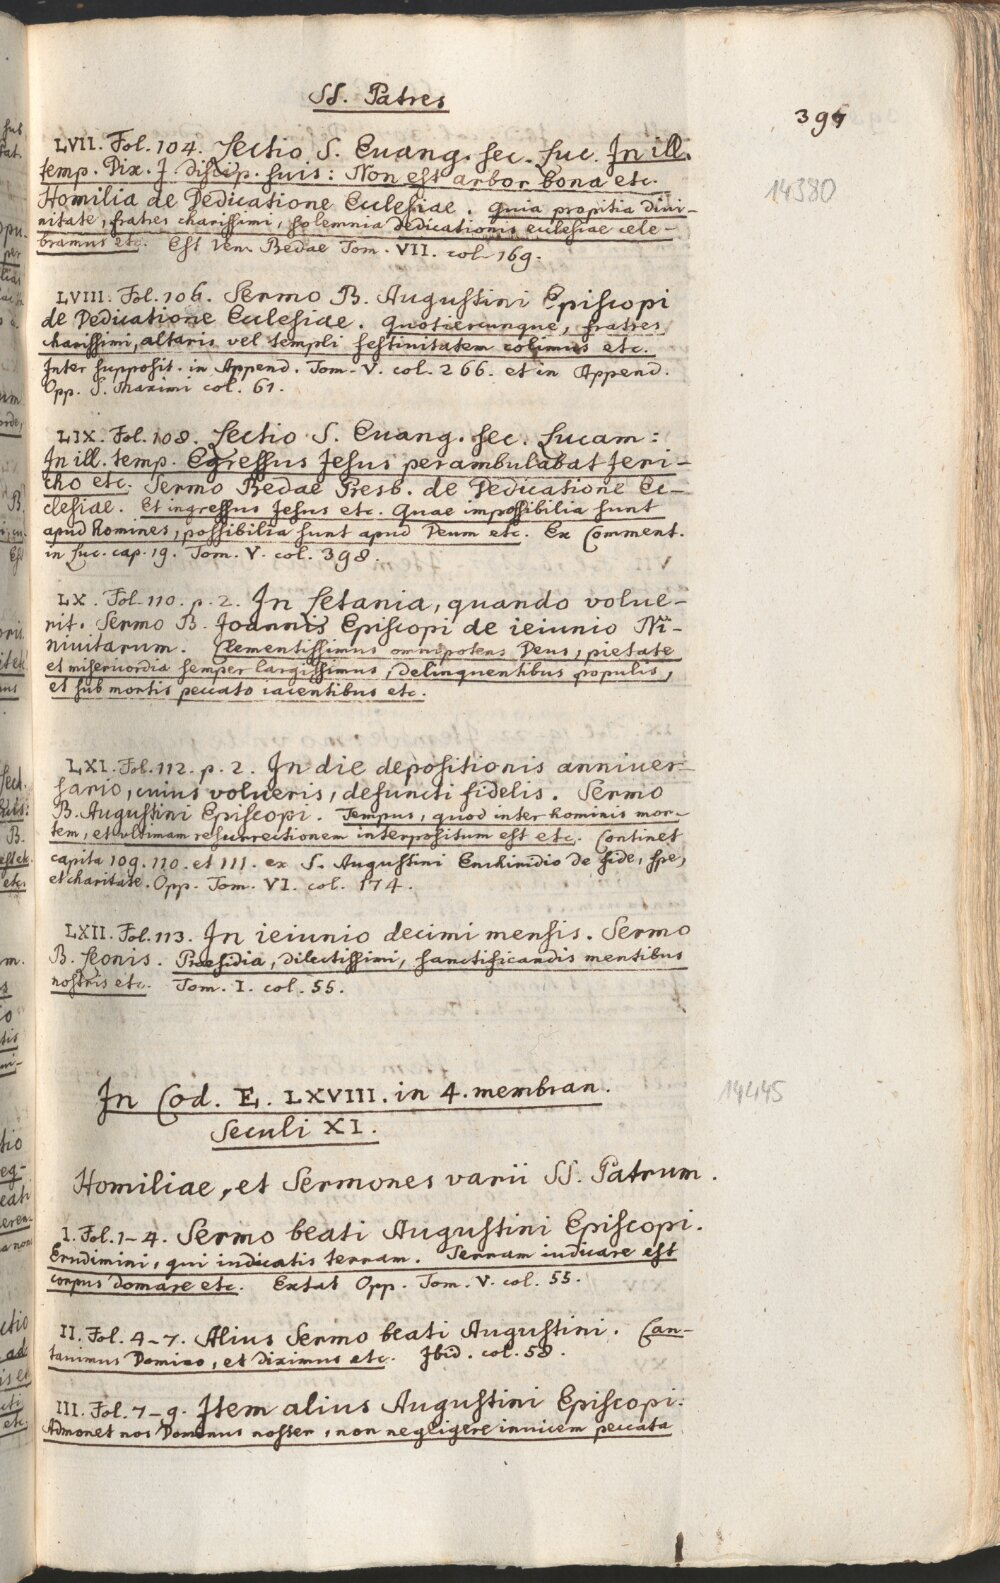 SS. Patres
395
14380
LVII. Fol. 104. Lectio S. Euang. sec. Luc. In ill.
temp. Dix. J. discip. suis: Non est arbor bona etc.
Homilia de Dedicatione Ecclesiae. Quia propitia divi-
nitate, fratres charissimi, solemnia dedicationis ecclesiae cele-
bramus etc. Est Ven. Bedae Tom. VII. col. 169.
LVIII. Fol. 106. Sermo B. Augustini Episcopi
de Dedicatione Ecclesiae. Quotiescunque, fratres
charissimi, altaris vel templi festivitatem colimus etc.
Inter supposit. in Append. Tom. V. col. 266. et in Append.
Opp. S. Maximi col. 61.
LIX. Fol. 108. Lectio S. Euang. sec. Lucam:
In ill. temp. Egressus Jesus perambulabat Jeri-
cho etc. Sermo Bedae Presb. de Dedicatione Ec-
clesiae. Et ingressus Jesus etc. Quae impossibilia sunt
apud homines, possibilia sunt apud Deum etc. Ex Comment.
in Luc. cap. 19. Tom. V. col. 398.
LX. Fol. 110. p. 2. In Letania, quando volue-
rit. Sermo B. Joannis Episcopi de ieiunio Ni-
niuitarum. Clementissimus omnipotens Deus, pietate
et misericordia semper largissimus, delinquentibus populis,
et sub mortis peccato iacentibus etc.
LXI. Fol. 112. p. 2. In die depositionis anniuer-
sario, cuius volueris, defuncti fidelis. Sermo
B. Augustini Episcopi. Tempus, quod inter hominis mor-
tem, et ultimam resurrectionem interpositum est etc. Continet
capita 109. 110. et 111. ex S. Augustini Enchiridio de fide, spe,
et charitate. Opp. Tom. VI. col. 174.
LXII. Fol. 113. In ieiunio decimi mensis. Sermo
B. Leonis. Praesidia, dilectissimi, sanctificandis mentibus
nostris etc. Tom. I. col. 55.
In Cod. E. LXVIII. in 4. membran.
14445
Seculi XI.
Homiliae, et Sermones varii SS. Patrum.
I. Fol. 1-4. Sermo beati Augustini Episcopi.
Erudimini, qui iudicatis terram. Terram iudicare est
corpus domare etc. Extat Opp. Tom. V. col. 55.
II. Fol. 4-7. Alius Sermo beati Augustini. Can-
tauimus Domino, et diximus etc. Ibid. col. 58.
III. Fol. 7-9. Item alius Augustini Episcopi.
Admonet nos Dominus noster, non negligere inuicem peccata